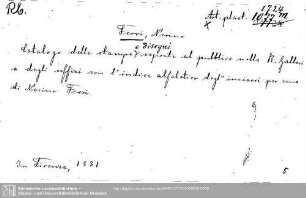 Rb.
1724
Art. plast. 1077 m
x
Ferri, Nerino
e disegni
Catalogo delle stampe esposte al pubblico nella R. Galleria
degli uffizi con l'indice alfabetico degl' incisori per cura
di Nerino Ferri.
In Firenze, 1881